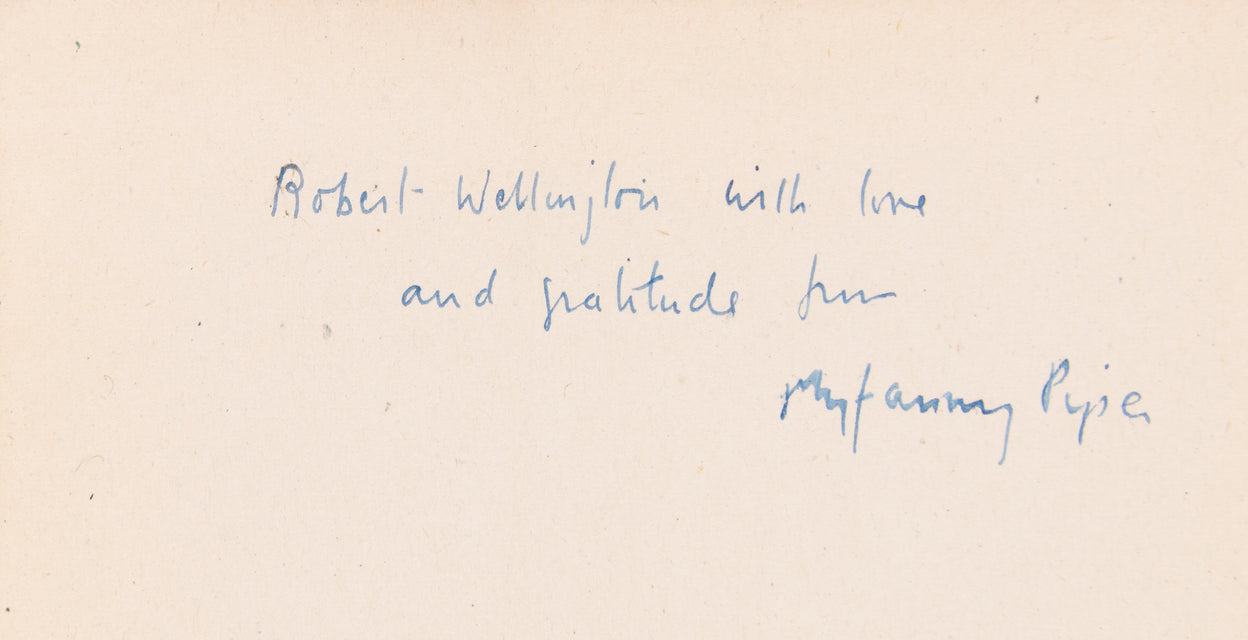 Robert Wellington with love
and gratitude from
Myfanwy Piper